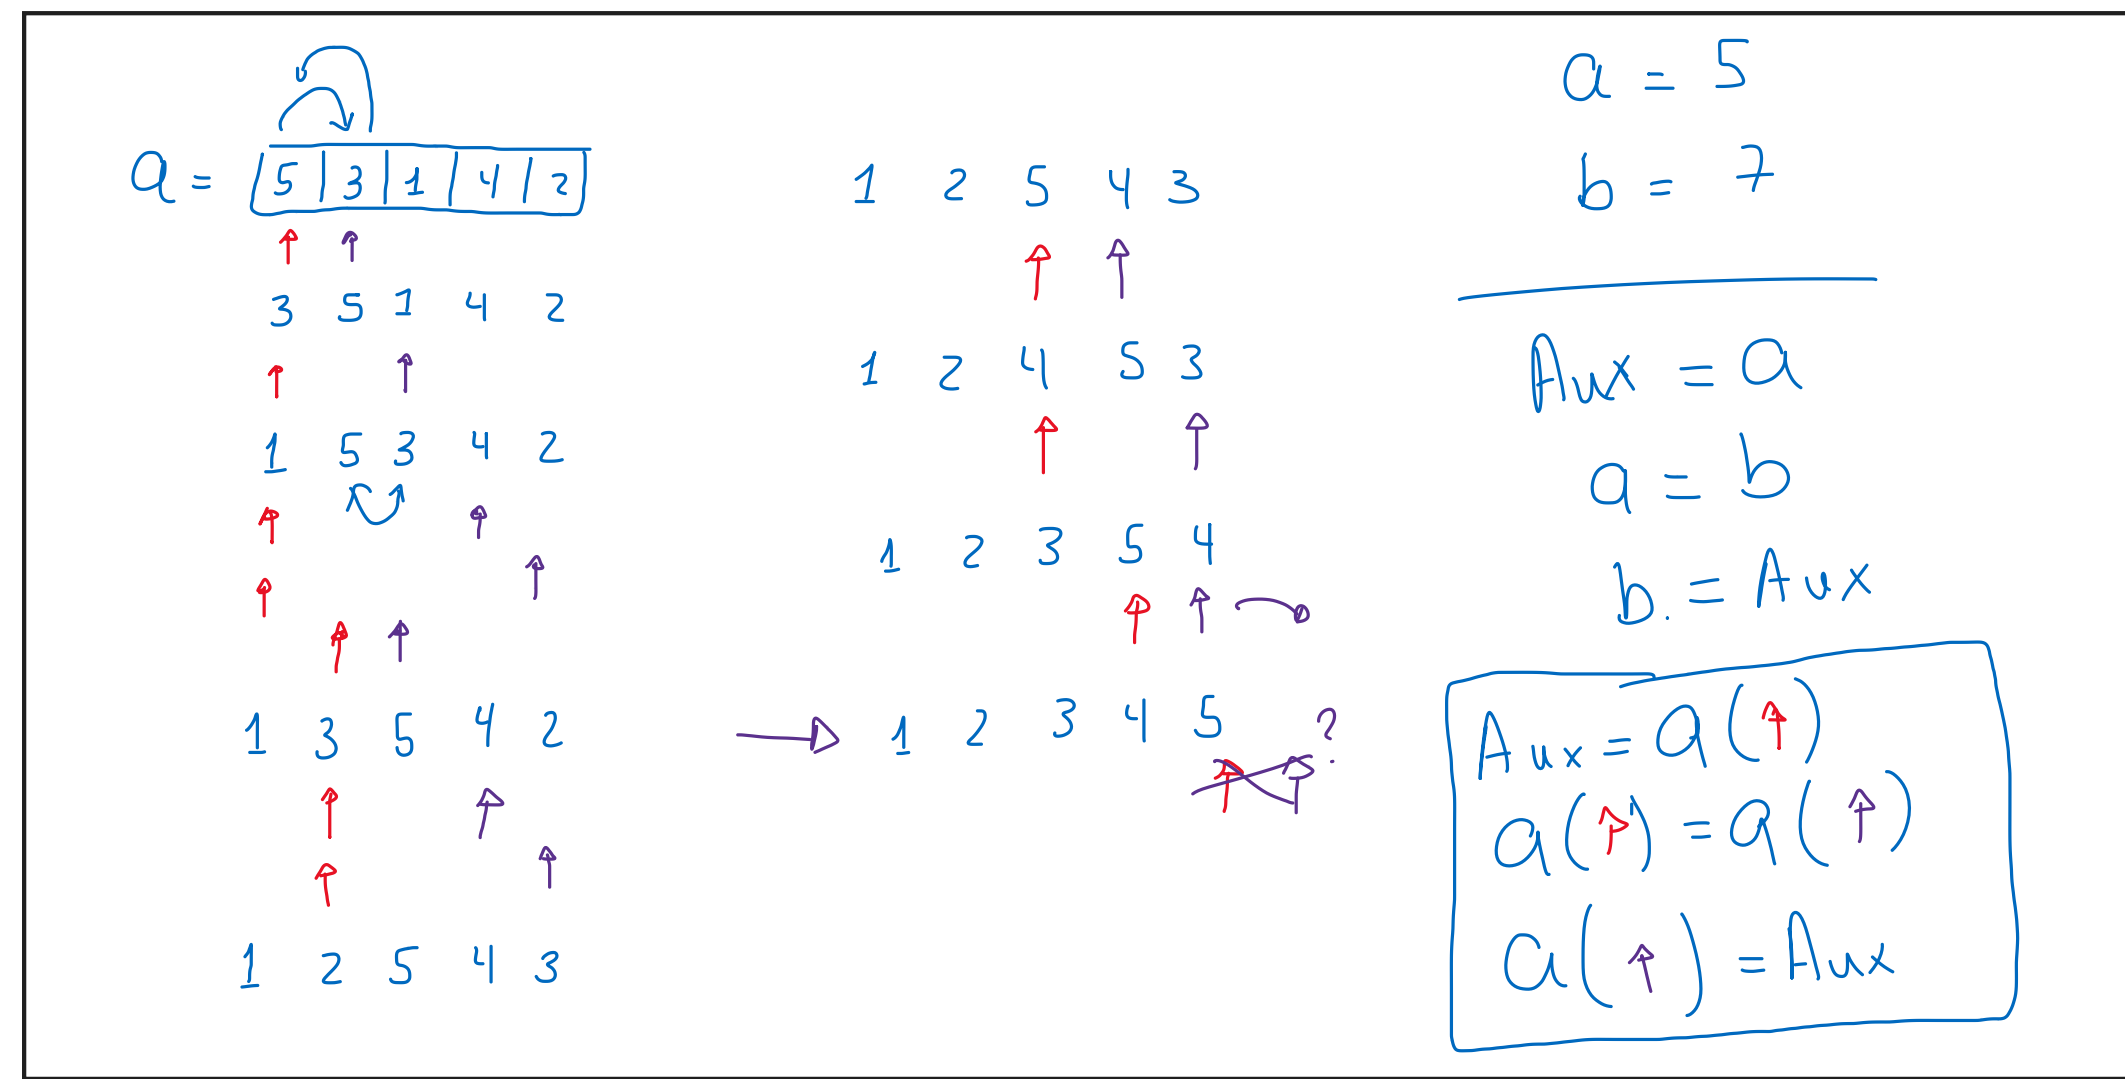 a = 5 3 1 4 2
3 5 1 4 2
1 5 3 4 2
1 3 5 4 2
1 2 5 4 3
1 2 5 4 3
1 2 4 5 3
1 2 3 5 4
→ 1 2 3 4 5 ?
a = 5
b = 7
Aux = a
a = b
b. = Aux
Aux = a(↑)
a(↑) = a(↑)
a(↑) = Aux